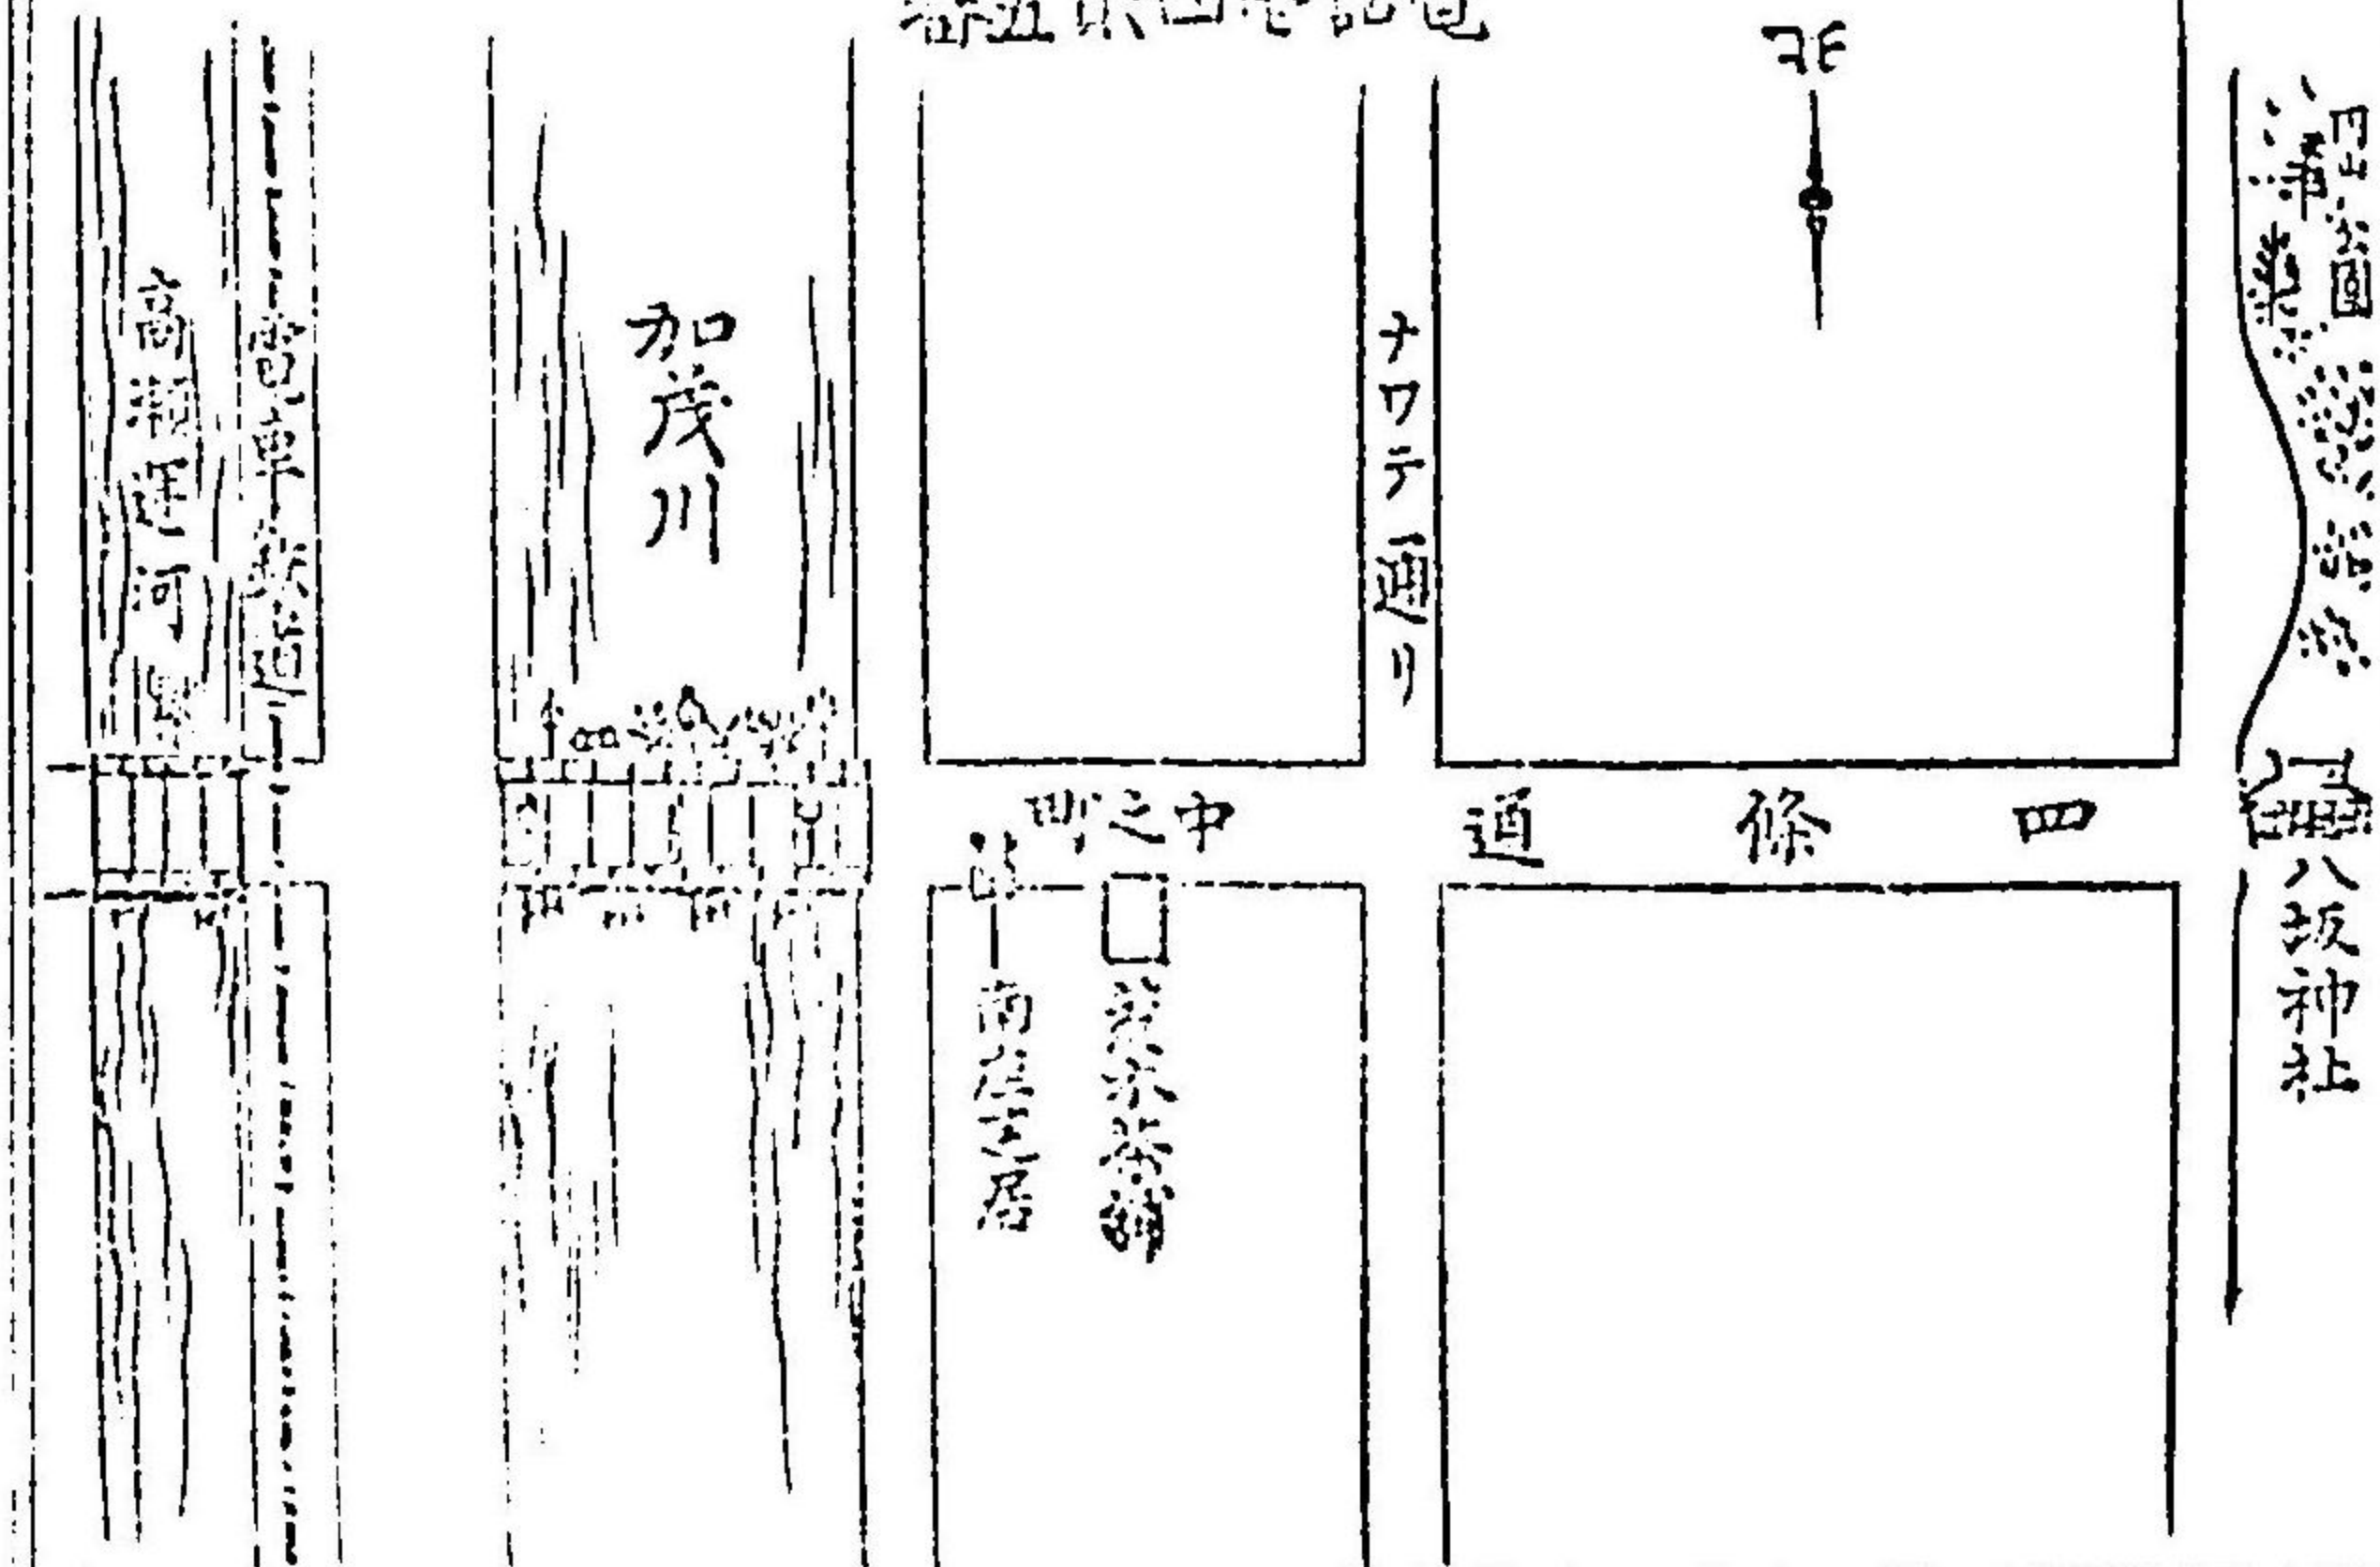 北
円山公園
八坂神社
四條通
中之町
ナワテ通リ
加茂川
南座芝居
電車鉄道
高瀬運河